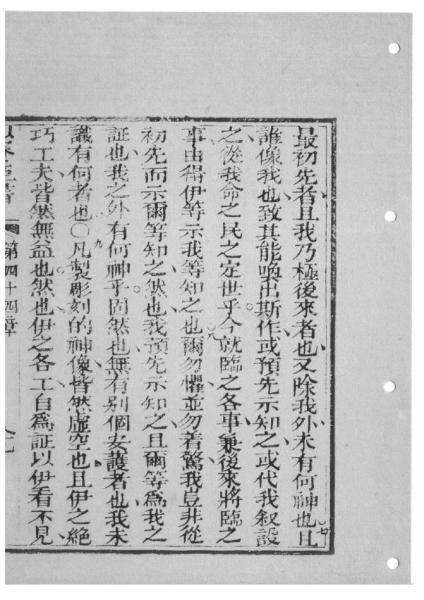 最初先者且我乃極後來者也又除我外未有何神也且
七
誰像我也致其能喚出斯作或預先示知之或代我叙設
之從我命之民之定世乎今就臨之各事兼後來將臨之
八
事由得伊等示我等知之也爾勿懼並勿着驚我豈非從
初先而示爾等知之然也我預先示知之且爾等為我之
証也我之外有何神乎固然也無有别個安護者也我未
九
識有何者也○凡製彫刻的神像皆然虛空也且伊之絶
巧工夫皆然無益也然也伊之各工自爲証以伊看不見
第四十四章